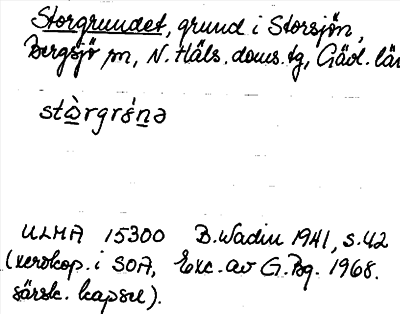 Storgrundet, grund i Storsjön,
Bergsjö sn, N. Häls. doms. tg, Gävl. län
stòrgrǿnə
ULMA 15300 B. Wadin 1941, s. 42
(xerokop. i SOA, Exc. av G. Bg. 1968.
särsk. kapsel).